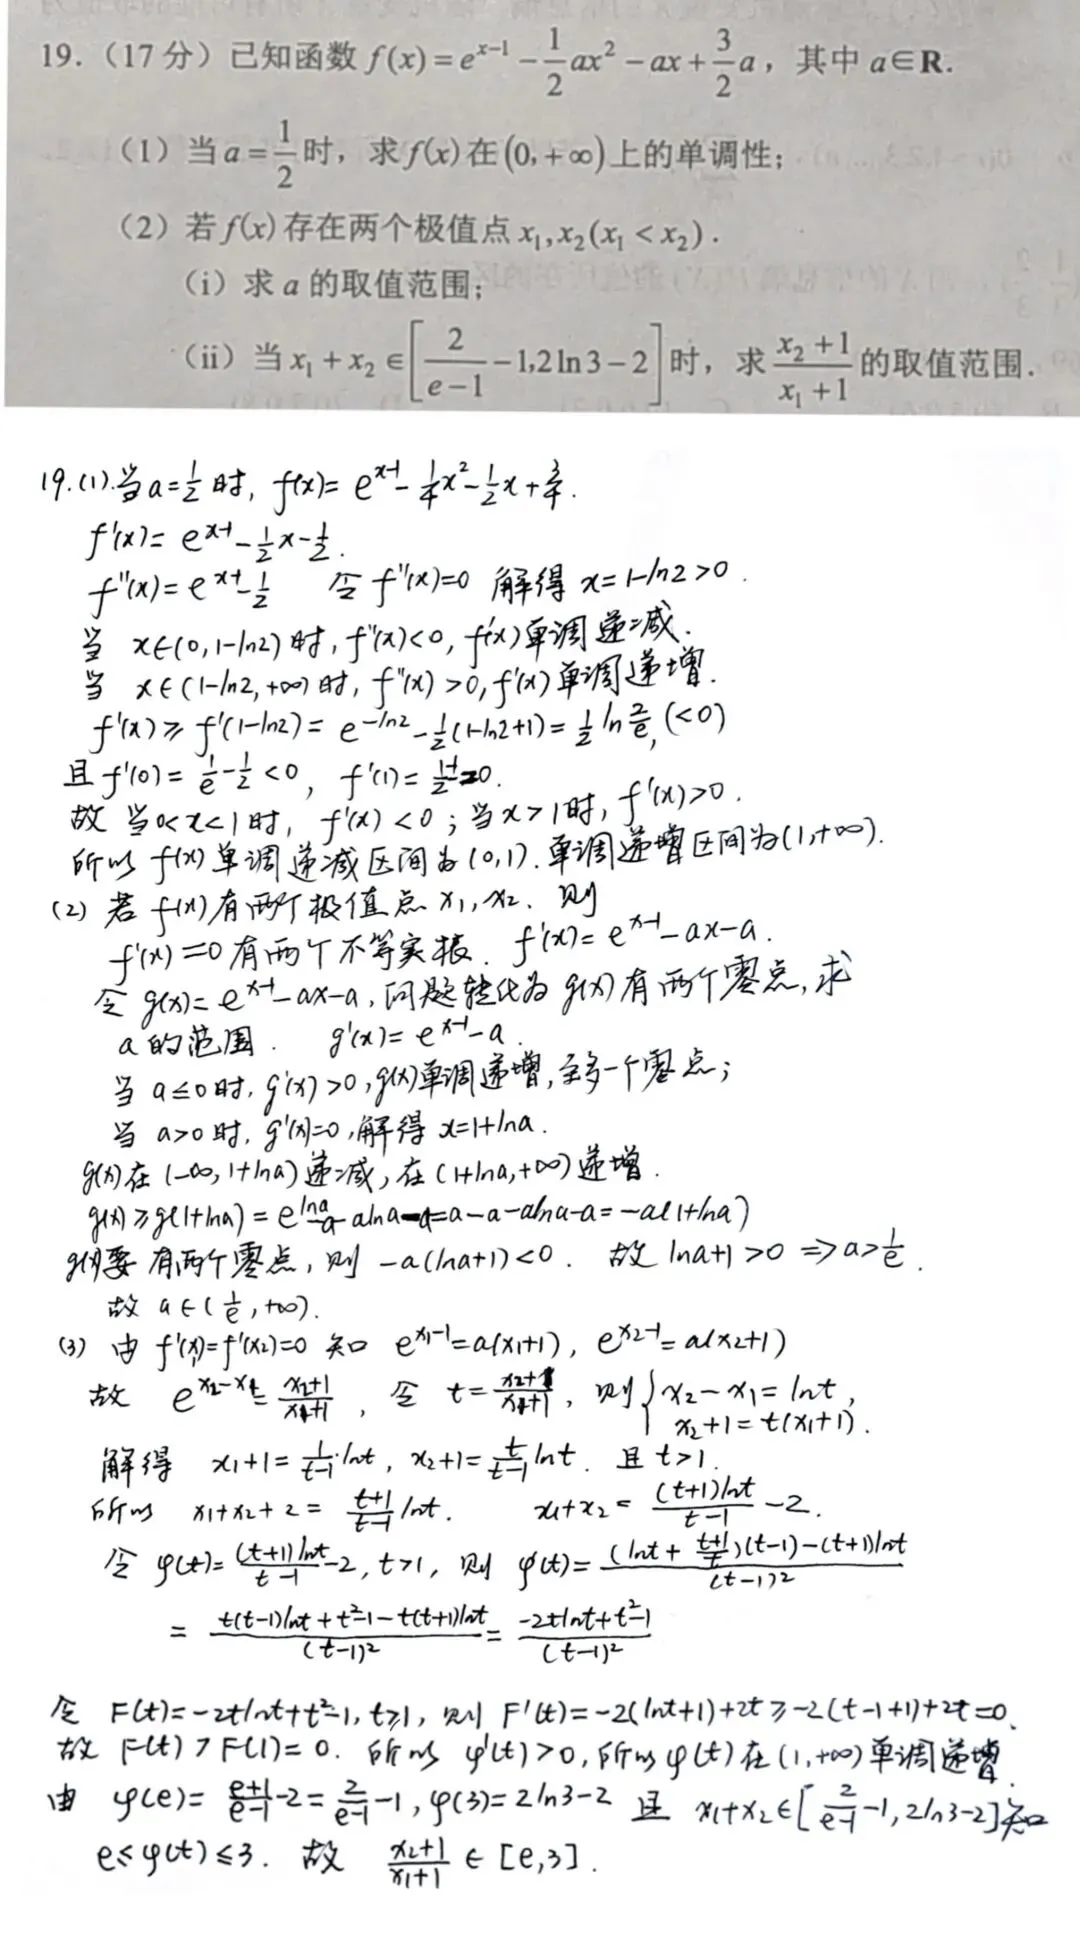 19.（17分）已知函数 f(x)=e^{x-1}-\frac{1}{2}ax^2-ax+\frac{3}{2}a，其中 a∈R.
（1）当 a=\frac{1}{2} 时，求 f(x) 在 (0,+∞) 上的单调性；
（2）若 f(x) 存在两个极值点 x_1,x_2(x_1<x_2).
（i）求 a 的取值范围；
（ii）当 x_1+x_2∈[\frac{2}{e-1}-1,2ln3-2] 时，求 \frac{x_2+1}{x_1+1} 的取值范围.
19.(1).当 a=\frac{1}{2} 时, f(x)=e^{x-1}-\frac{1}{4}x^2-\frac{1}{2}x+\frac{3}{4}.
f'(x)=e^{x-1}-\frac{1}{2}x-\frac{1}{2}.
f''(x)=e^{x-1}-\frac{1}{2} 令 f''(x)=0 解得 x=1-ln2>0.
当 x∈(0,1-ln2) 时, f''(x)<0, f'(x) 单调递减.
当 x∈(1-ln2,+∞) 时, f''(x)>0, f'(x) 单调递增.
f'(x)≥f'(1-ln2)=e^{-ln2}-\frac{1}{2}(1-ln2+1)=\frac{1}{2}ln\frac{2}{e},(<0)
且 f'(0)=\frac{1}{e}-\frac{1}{2}<0, f'(1)=\frac{1-1}{2}=0.
故 当0<x<1时, f'(x)<0; 当 x>1时, f'(x)>0.
所以 f(x) 单调递减区间为 (0,1). 单调递增区间为 (1,+∞).
(2) 若 f(x) 有两个极值点 x_1, x_2. 则
f'(x)=0 有两个不等实根. f'(x)=e^{x-1}-ax-a.
令 g(x)=e^{x-1}-ax-a, 问题转化为 g(x) 有两个零点, 求
a 的范围. g'(x)=e^{x-1}-a.
当 a≤0 时, g'(x)>0, g(x)单调递增, 至多一个零点;
当 a>0 时, g'(x)=0, 解得 x=1+lna.
g(x) 在 (-∞, 1+lna) 递减, 在 (1+lna,+∞) 递增.
g(x)≥g(1+lna)=e^{lna}-a-alna-a=a-a-alna-a=-a(1+lna)
g(x)要有两个零点, 则 -a(lna+1)<0. 故 lna+1>0 ⇒ a>\frac{1}{e}.
故 a∈(\frac{1}{e},+∞).
(3) 由 f'(x_1)=f'(x_2)=0 知 e^{x_1-1}=a(x_1+1), e^{x_2-1}=a(x_2+1)
故 e^{x_2-x_1}=\frac{x_2+1}{x_1+1}, 令 t=\frac{x_2+1}{x_1+1}, 则 { x_2-x_1=lnt,
x_2+1=t(x_1+1).
解得 x_1+1=\frac{1}{t-1}·lnt, x_2+1=\frac{t}{t-1}lnt. 且 t>1.
所以 x_1+x_2+2=\frac{t+1}{t-1}lnt. x_1+x_2=\frac{(t+1)lnt}{t-1}-2.
令 φ(t)=\frac{(t+1)lnt}{t-1}-2, t>1, 则 φ'(t)=\frac{(lnt+\frac{t+1}{t})(t-1)-(t+1)lnt}{(t-1)^2}
=\frac{t(t-1)lnt+t^2-1-t(t+1)lnt}{(t-1)^2}=\frac{-2tlnt+t^2-1}{(t-1)^2}
令 F(t)=-2tlnt+t^2-1, t≥1, 则 F'(t)=-2(lnt+1)+2t≥-2(t-1+1)+2t=0.
故 F(t)>F(1)=0. 所以 φ'(t)>0, 所以 φ(t) 在 (1,+∞) 单调递增.
由 φ(e)=\frac{e+1}{e-1}-2=\frac{2}{e-1}-1, φ(3)=2ln3-2 且 x_1+x_2∈[\frac{2}{e-1}-1, 2ln3-2]知
e≤φ(t)≤3. 故 \frac{x_2+1}{x_1+1}∈[e,3].